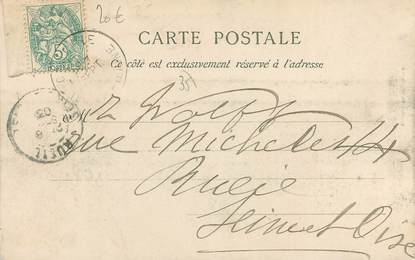 20€
5
CARTE POSTALE
Ce côté est exclusivement réservé à l'adresse
35
Wolff
Rue Michelet 44
Rueil
Seine et Oise
RUEIL